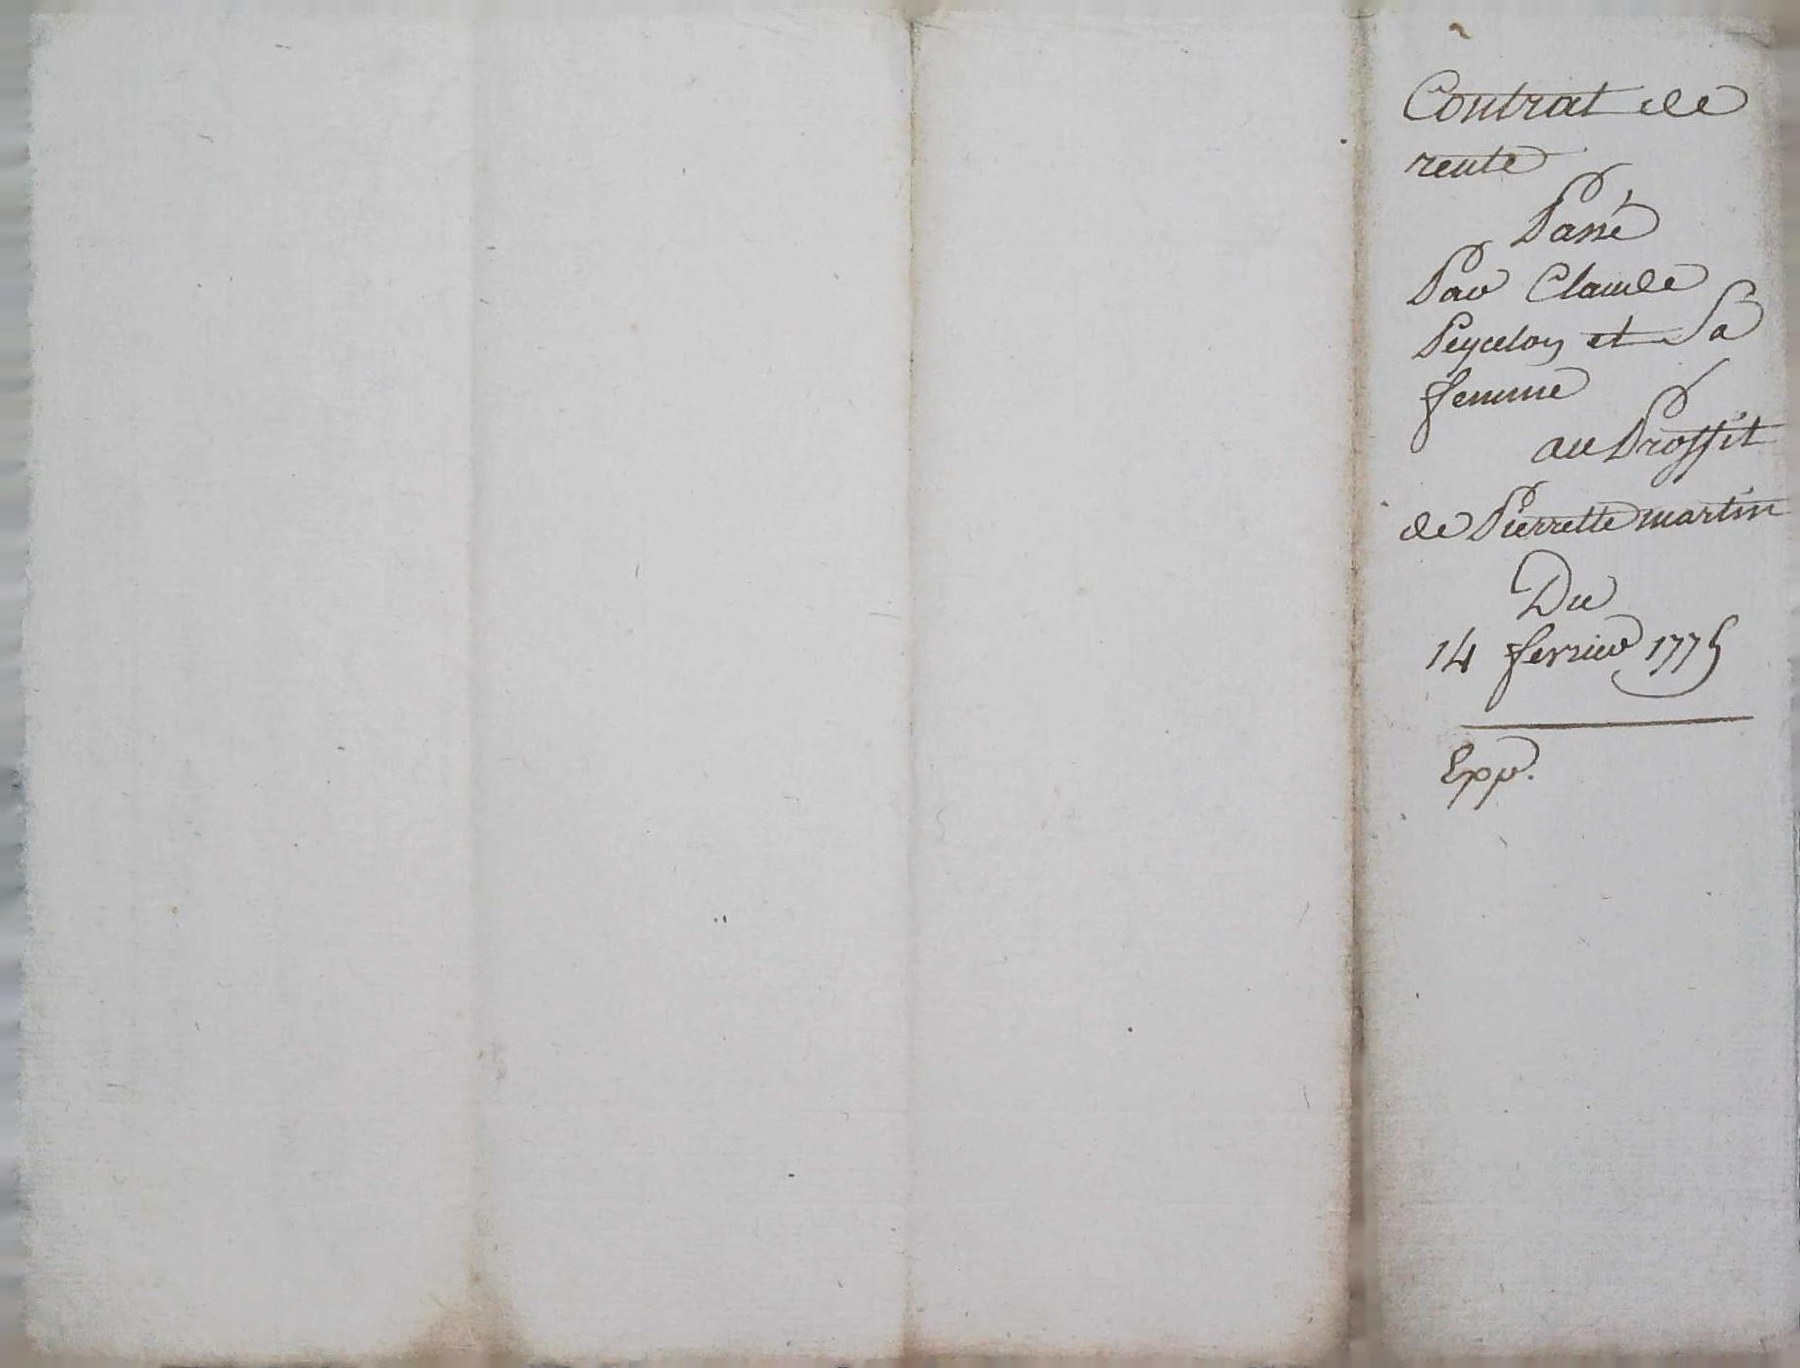 Contrat de
rente
Passé
Par Claude
Peycelon et Sa
femme
au Proffit
de Pierrette martin
Du
14 fevrier 1775
Exp.